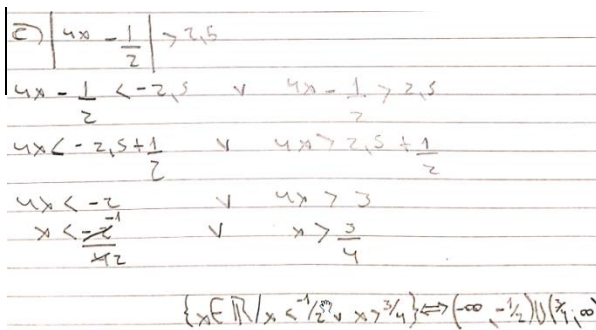 c) |4x - 1/2| > 2,5
4x - 1/2 < -2,5 ∨ 4x - 1/2 > 2,5
4x < -2,5 + 1/2 ∨ 4x > 2,5 + 1/2
4x < -2 ∨ 4x > 3
x < -2/4 -1/2 ∨ x > 3/4
{x ∈ ℝ / x < -1/2 ∨ x > 3/4} ⟺ (-∞, -1/2) ∪ (3/4, ∞)